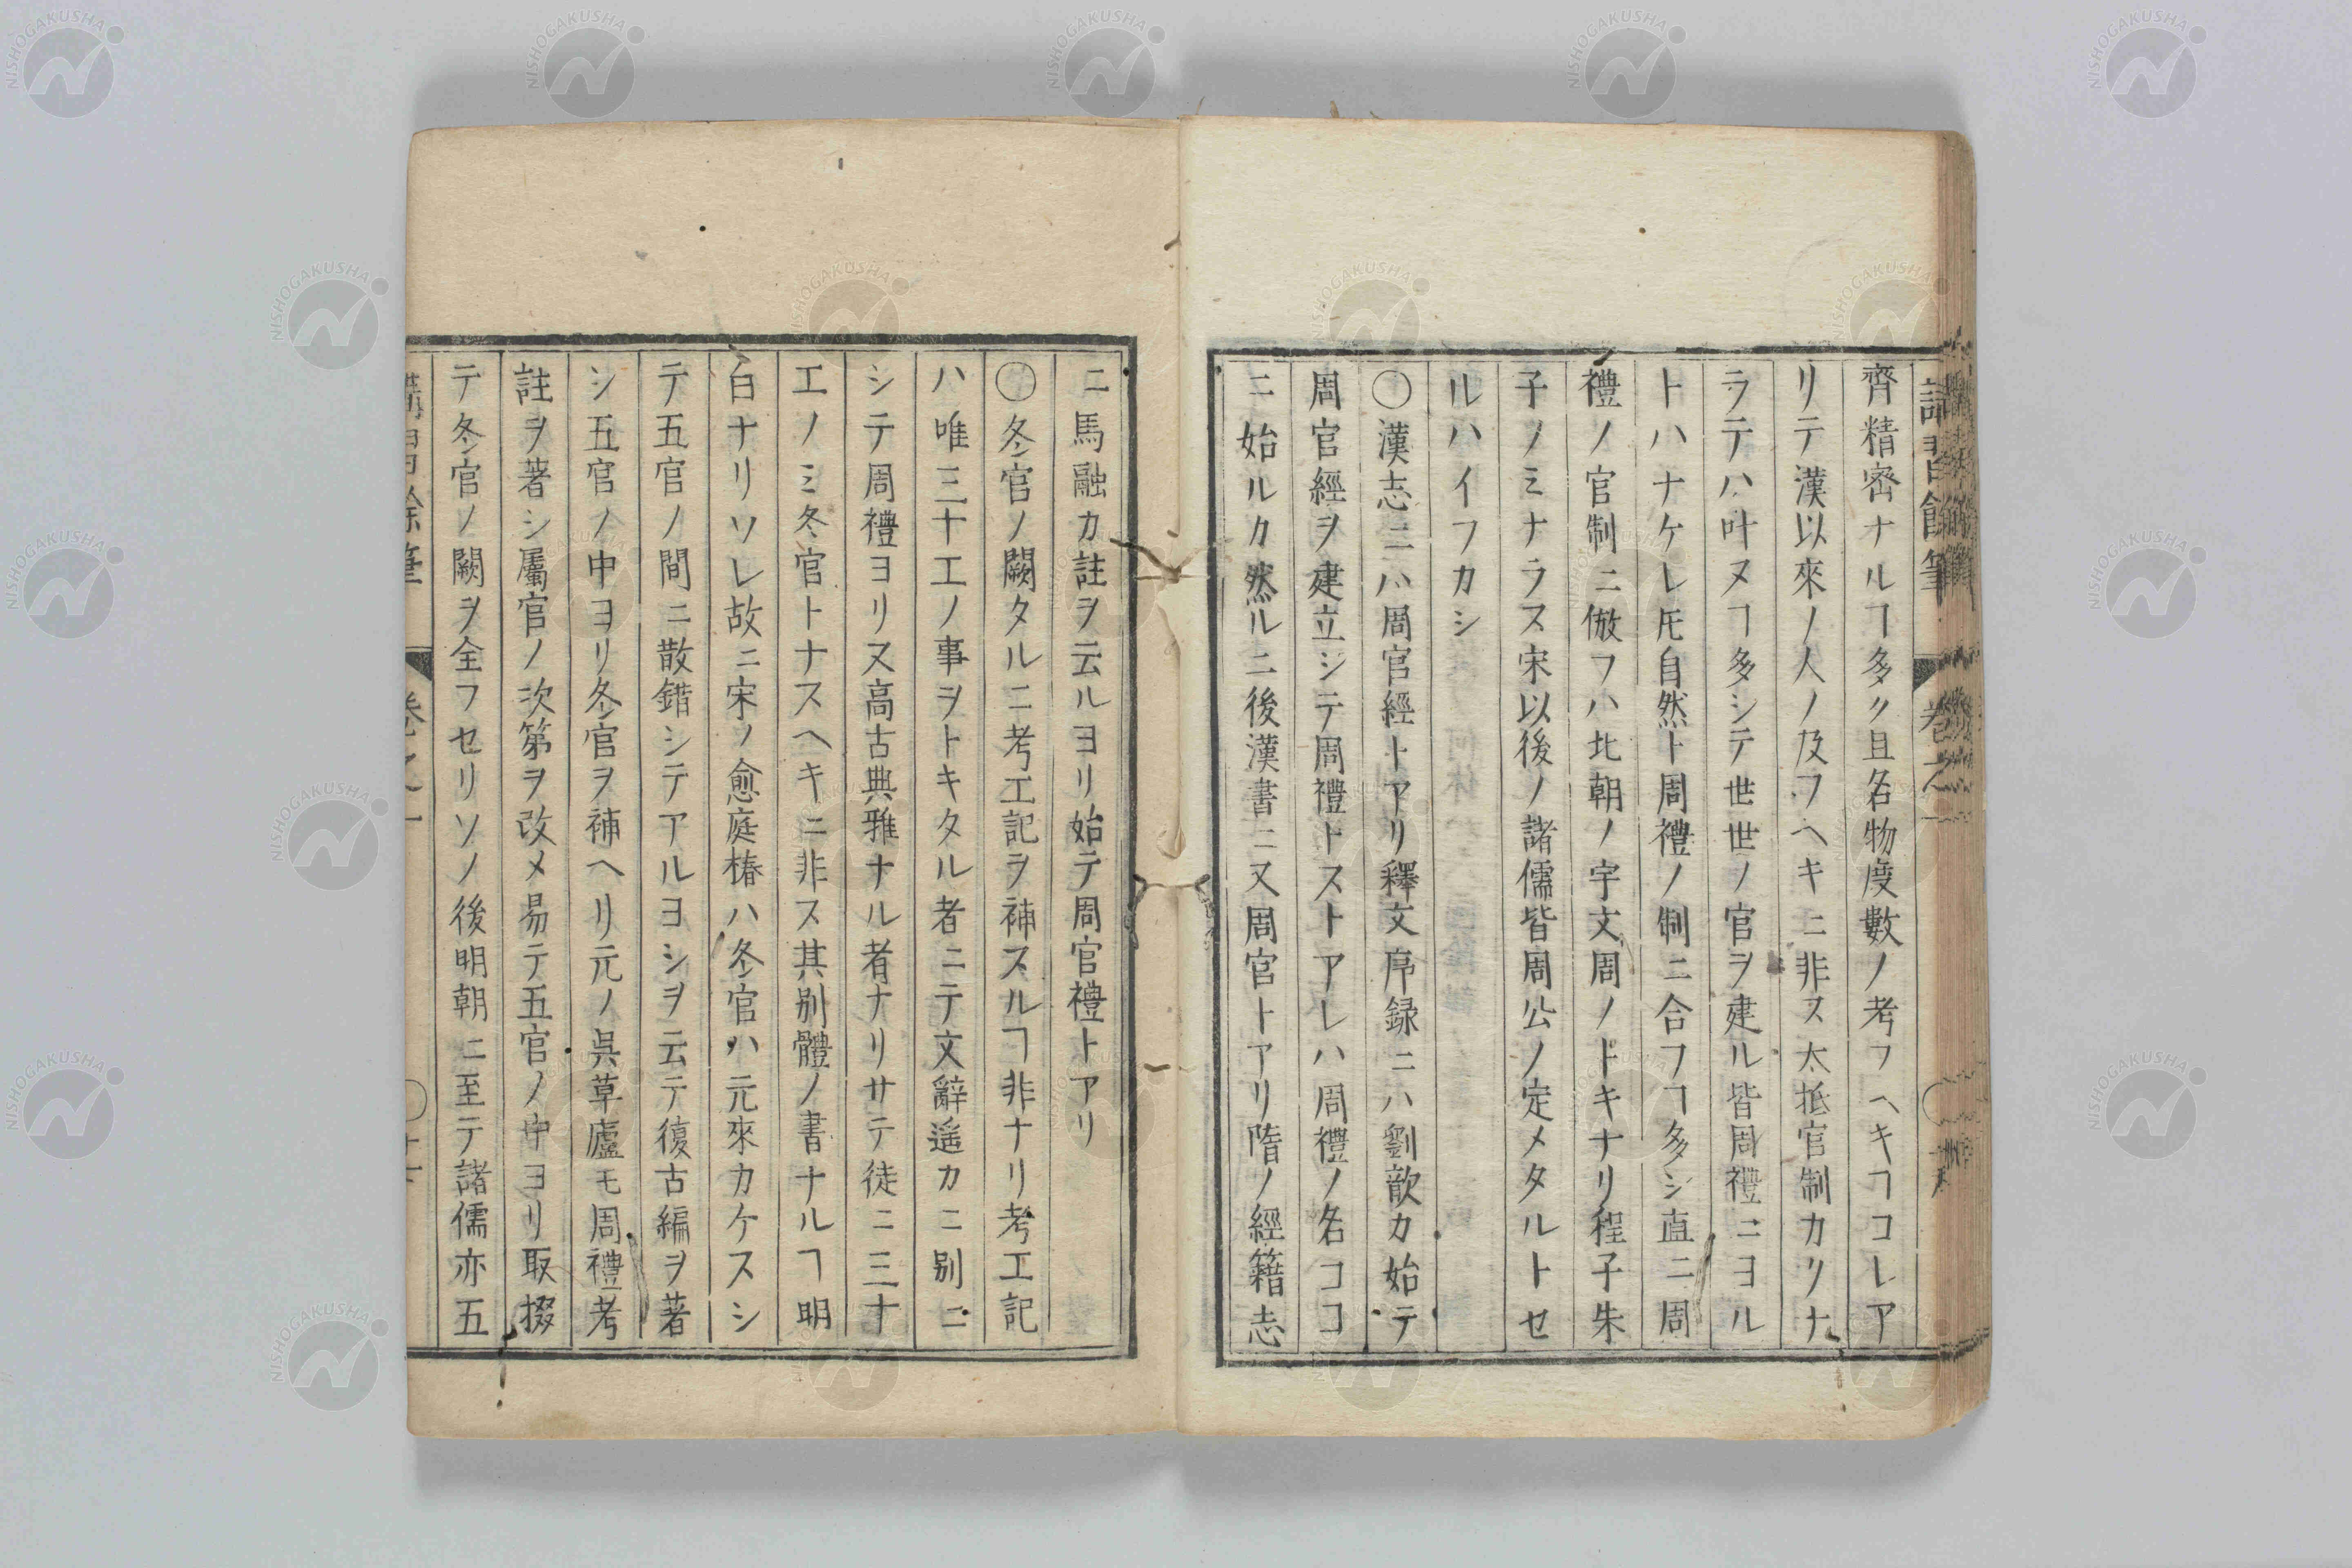 齊精密ナルヿ多ク且名物度數ノ考フヘキヿコレア
リテ漢以來ノ人ノ及フヘキニ非ス太抵官制カリナ
ラテハ叶ヌヿ多シテ世世ノ官ヲ建ル皆周禮ニヨル
トハナケレ𪜈自然ト周禮ノ制ニ合フヿ多シ直ニ周
禮ノ官制ニ倣フハ北朝ノ宇文周ノトキナリ程子朱
子ノミナラス宋以後ノ諸儒皆周公ノ定メタルトセ
ルハイフカシ
〇漢志ニハ周官經トアリ釋文序録ニハ劉歆カ始テ
周官經ヲ建立シテ周禮トストアレハ周禮ノ名ココ
ニ始ルカ然ルニ後漢書ニ又周官トアリ隋ノ經籍志
ニ馬融カ註ヲ云ルヨリ始テ周官禮トアリ
〇冬官ノ闕タルニ考工記ヲ補スルヿ非ナリ考工記
ハ唯三十工ノ事ヲトキタル者ニテ文辭遙カニ別ニ
シテ周禮ヨリ又高古典雅ナル者ナリサテ徒ニ三十
工ノミ冬官トナスヘキニ非ス其別體ノ書ナルヿ明
白ナリソレ故ニ宋ノ愈庭椿ハ冬官ハ元來カケスシ
テ五官ノ間ニ散錯シテアルヨシヲ云テ復古編ヲ著
シ五官ノ中ヨリ冬官ヲ補ヘリ元ノ呉草廬モ周禮考
註ヲ著シ屬官ノ次第ヲ改メ易テ五官ノ中ヨリ取掇
テ冬官ノ闕ヲ全フセリソノ後明朝ニ至テ諸儒亦五
講習餘筆 卷之一
NISHOGAKUSHA